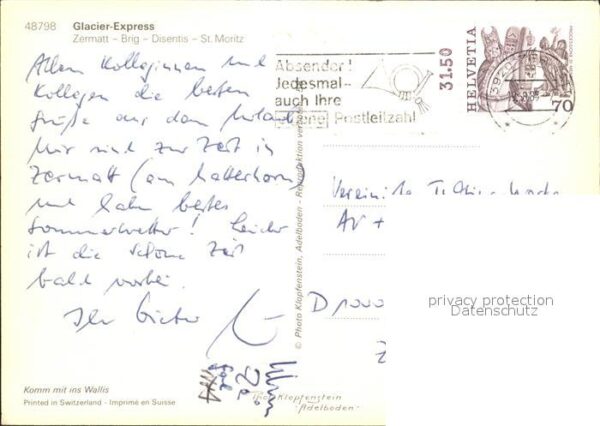 48798 Glacier-Express
Zermatt – Brig – Disentis – St. Moritz
Allen Kolleginnen und
Kollegen die besten
Grüße aus dem Urlaub
Wir sind zur Zeit in
Zermatt (am Matterhorn)
und haben bestes
Sommerwetter! Leider
ist die schöne Zeit
bald vorbei.
Ihr
Komm mit ins Wallis
Printed in Switzerland - Imprimé en Suisse
© Photo Klopfenstein, Adelboden - Reproduktion verboten
Absender!
Jedesmal-
auch Ihre
eigene Postleitzahl
3150
HELVETIA
70
AV +
D 1000
privacy protection
Datenschutz
Klopfenstein
-Adelboden-